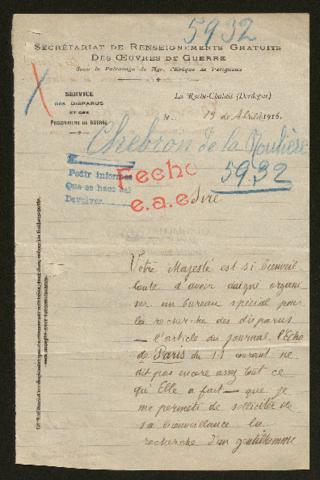 5932
SECRÉTARIAT DE RENSEIGNEMENTS GRATUITS
DES ŒUVRES DE GUERRE
Sous le Patronage de Mgr. l'Évêque de Périgueux
SERVICE
DES DISPARUS
ET DES
PRISONNIERS DE GUERRE
La Roche-Chalais (Dordogne)
le 19 de 1916.
Chebron de la
5932
Pedir informes
Que se hace
Devolver
Fecho
e.a.e.
Sire
Votre Majesté est si bienveil
lante d'avoir daigné organi
ser un bureau spécial pour
la recherche des disparus
— l'article du journal l'Echo
de Paris du 15 courant ne
dit pas encore assez tout ce
qu'Elle a fait — que je
me permets de solliciter de
sa bienveillance la
recherche d'un gentilhomme